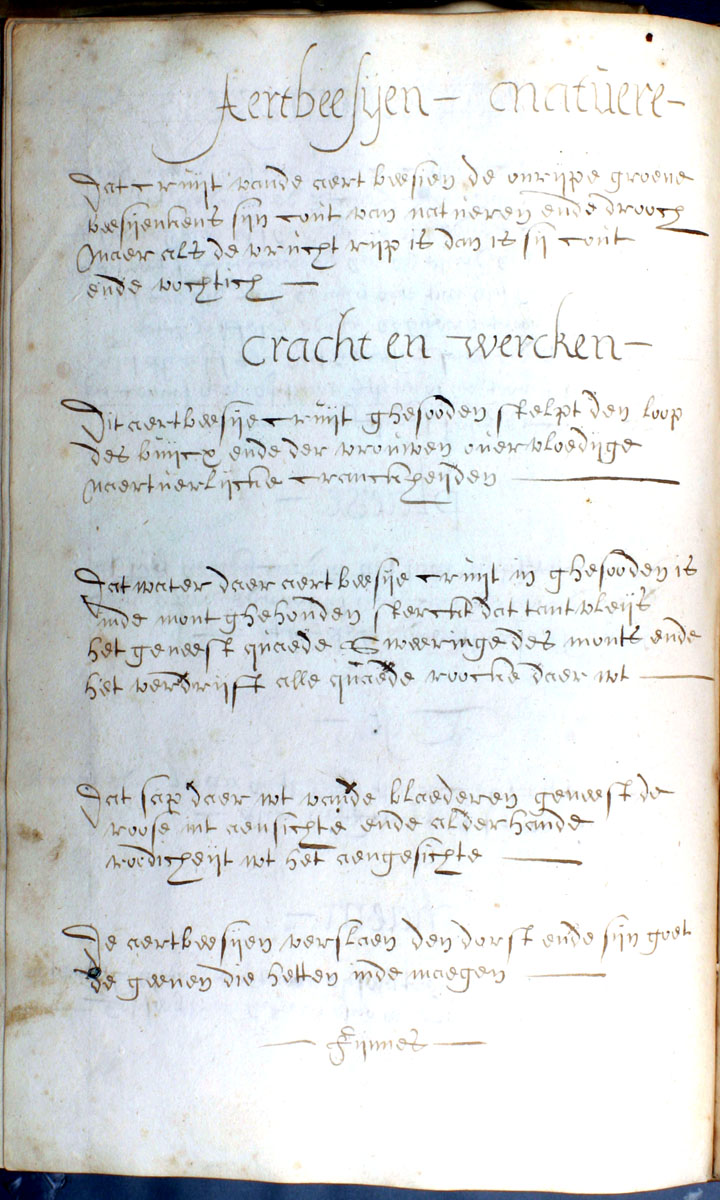 Aertbeesijen - Natuere -
Dat cruijt vande aertbeesien de onrijpe groene
beesijenkens sijn cout van natueren ende drooch
Maer als de vrucht rijp is dan is sij cout
ende vochtich -
Cracht en wercken -
Dit aertbeesije cruijt ghesooden stelpt den loop
des buijcx ende der vrouwen overvloedijge
Naertuerlijcke cranckheijden -
Dat water daer aertbeesije cruijt in ghesooden is
inde mont ghehouden sterckt dat tantvleijs
het geneest quaede Sweeringe des monts ende
het verdrijft alle quaede roocke daer wt -
Dat sap daer wt vande blaederen geneest de
roose int aensichte ende alderhande
roodicheijt wt het aengesichte -
De aertbeesijen verslaen den dorst ende sijn goet
de geenen die hetten inde maegen -
- Fijnnes -